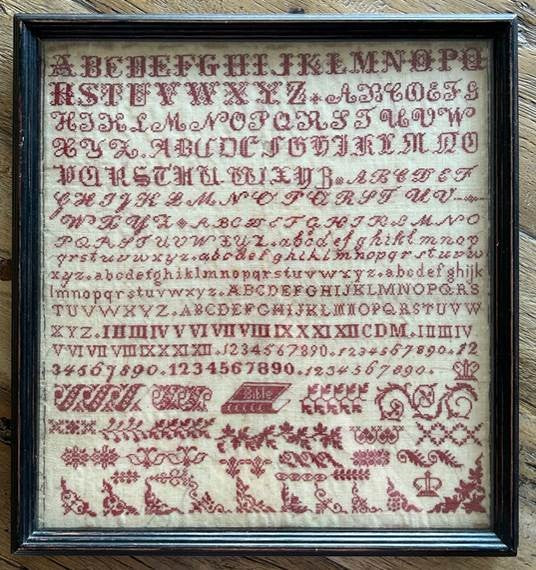 ABCDEFGHIJKLMNOPQ
RSTUVWXYZ. ABCDEFG
HIKLMNOPQRSTUVW
XYZ. ABCDEFGHIKLMNO
PQRSTUVWXYZ. ABCDEF
GHIJKLMNOPQRSTUV
WXYZ ABCDEFGHIKLMNO
PQRSTUVWXYZ. abcdefghiklmnop
qrstuvwxyz. abcdefghiklmnopqrstuvw
xyz. abcdefghijklmnopqrstuvwxyz. abcdefghijk
lmnopqrstuvwxyz. ABCDEFGHIJKLMNOPQRS
TUVWXYZ. ABCDEFGHIJKLMNOPQRSTUVW
XYZ. I II III IV V VI VII VIII IX X XI XII C D M. I II III IV
V VI VII VIII IX X XI XII. 1234567890. 1234567890. 12
34567890. 1234567890. 1234567890.
Bible